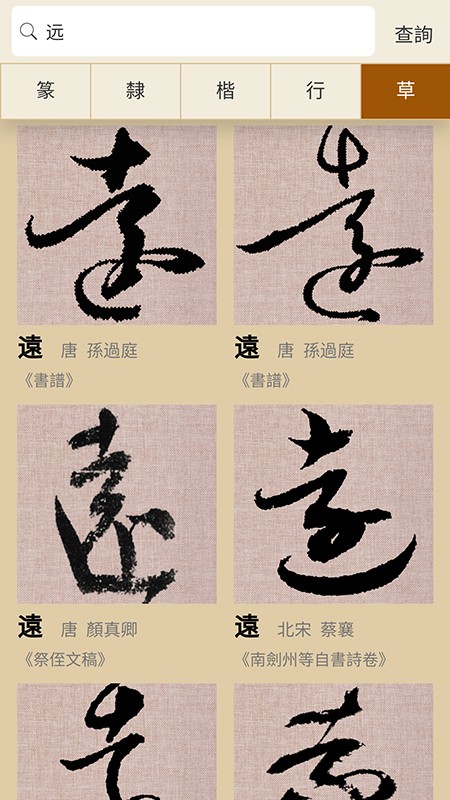 远 查詢
篆 隸 楷 行 草
遠 遠
遠 唐 孫過庭
《書譜》
遠 唐 孫過庭
《書譜》
遠 遠
遠 唐 顏真卿
《祭侄文稿》
遠 北宋 蔡襄
《南劍州等自書詩卷》